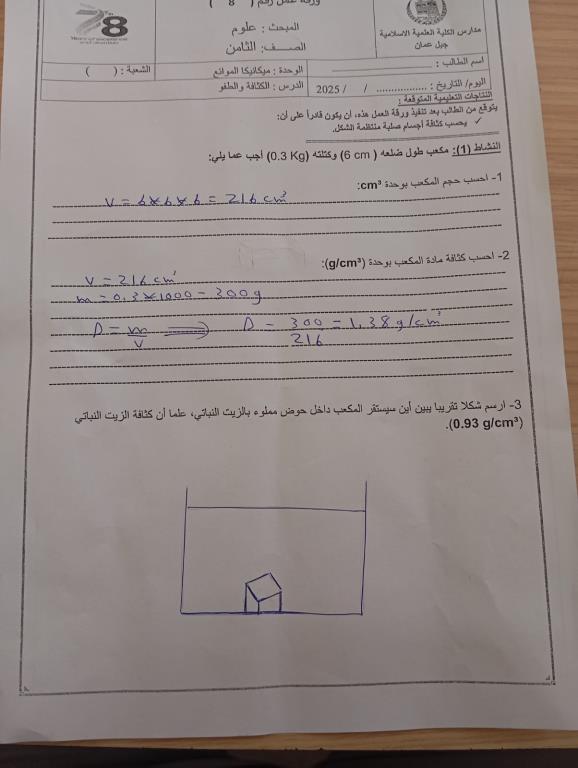 ورقة عمل رقم ( 8 )
مدارس الكلية العلمية الاسلامية
جبل عمان
المبحث : علوم
الصف: الثامن
78
اسم الطالب :
الوحدة : ميكانيكا الموائع
الشعبة : ( )
اليوم/ التاريخ : ................. / / 2025
الدرس : الكثافة والطفو
النتاجات التعليمية المتوقعة :
يتوقع من الطالب بعد تنفيذ ورقة العمل هذه، أن يكون قادراً على أن:
✓ يحسب كثافة أجسام صلبة منتظمة الشكل.
النشاط (1): مكعب طول ضلعه ( 6 cm) وكتلته (0.3 Kg) أجب عما يلي:
1- احسب حجم المكعب بوحدة cm³:
V = 6*6*6 = 216 cm³
2- احسب كثافة مادة المكعب بوحدة (g/cm³):
V = 216 cm³
m = 0.3*1000 = 300g
D = m/V ⟹ D = 300/216 = 1.38 g/cm³
3- ارسم شكلا تقريبا يبين أين سيستقر المكعب داخل حوض مملوء بالزيت النباتي، علما أن كثافة الزيت النباتي
(0.93 g/cm³).